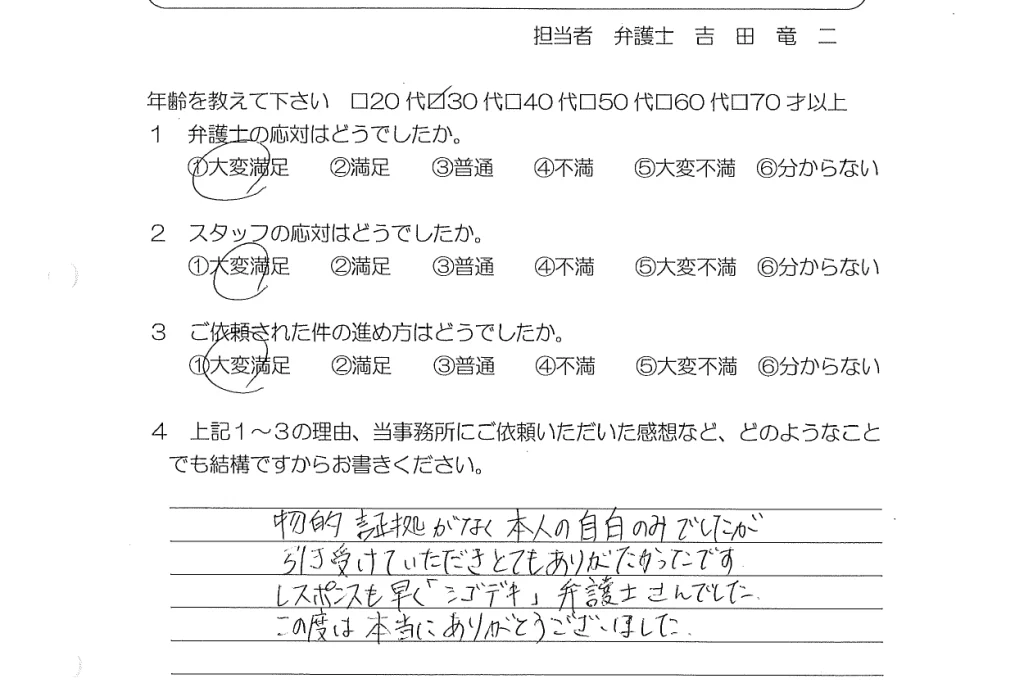 担当者　弁護士　吉　田　竜　二
年齢を教えて下さい　□20代☑30代□40代□50代□60代□70才以上
１　弁護士の応対はどうでしたか。
①大変満足　②満足　③普通　④不満　⑤大変不満　⑥分からない
２　スタッフの応対はどうでしたか。
①大変満足　②満足　③普通　④不満　⑤大変不満　⑥分からない
３　ご依頼された件の進め方はどうでしたか。
①大変満足　②満足　③普通　④不満　⑤大変不満　⑥分からない
４　上記１～３の理由、当事務所にご依頼いただいた感想など、どのようなこと
でも結構ですからお書きください。
物的証拠がなく本人の自白のみでしたが
引き受けていただきとてもありがたかったです
レスポンスも早く「シゴデキ」弁護士さんでした.
この度は本当にありがとうございました.